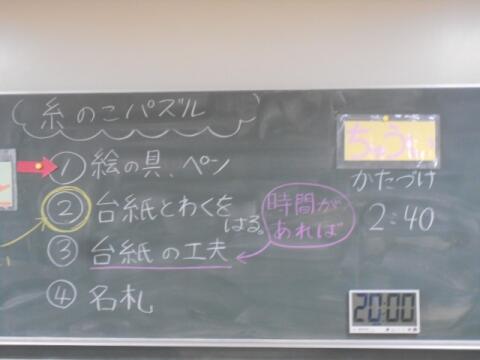 糸のこパズル
① 絵の具、ペン
② 台紙とわくをはる。
③ 台紙の工夫
時間が
あれば
④ 名札
かたづけ
2:40
20:00